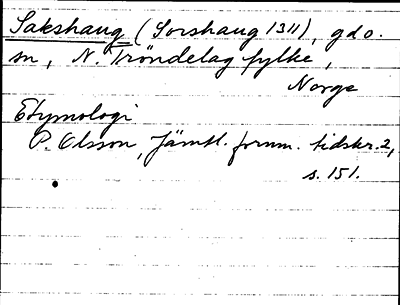 Sakshaug (Sorshaug 1311), gdo.
sn, N. Tröndelag fylke,
Norge
Etymologi
P. Olsson, Jämtl. fornm. tidskr. 2,
s. 151.